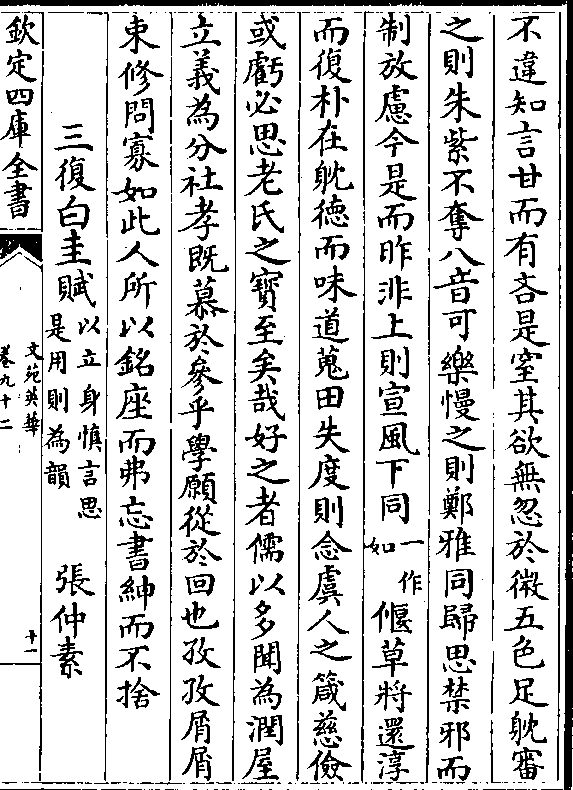 不違知言甘而有吝是窒其欲無忽於微五色足躭審
之則朱紫不奪八音可樂慢之則鄭雅同歸思禁邪而
制放慮今是而昨非上則宣風下同一作如偃草將還淳
而復朴在躭德而味道蒐田失度則念虞人之箴慈儉
或虧必思老氏之寳至矣哉好之者儒以多聞為潤屋
立義為分社孝既慕於參乎學願從於回也孜孜屑屑
束修問寡如此人所以銘座而弗忘書紳而不捨
三復白圭賦以立身慎言思是用則為韻 張仲素
欽定四庫全書
文苑英華
卷九十二
十一